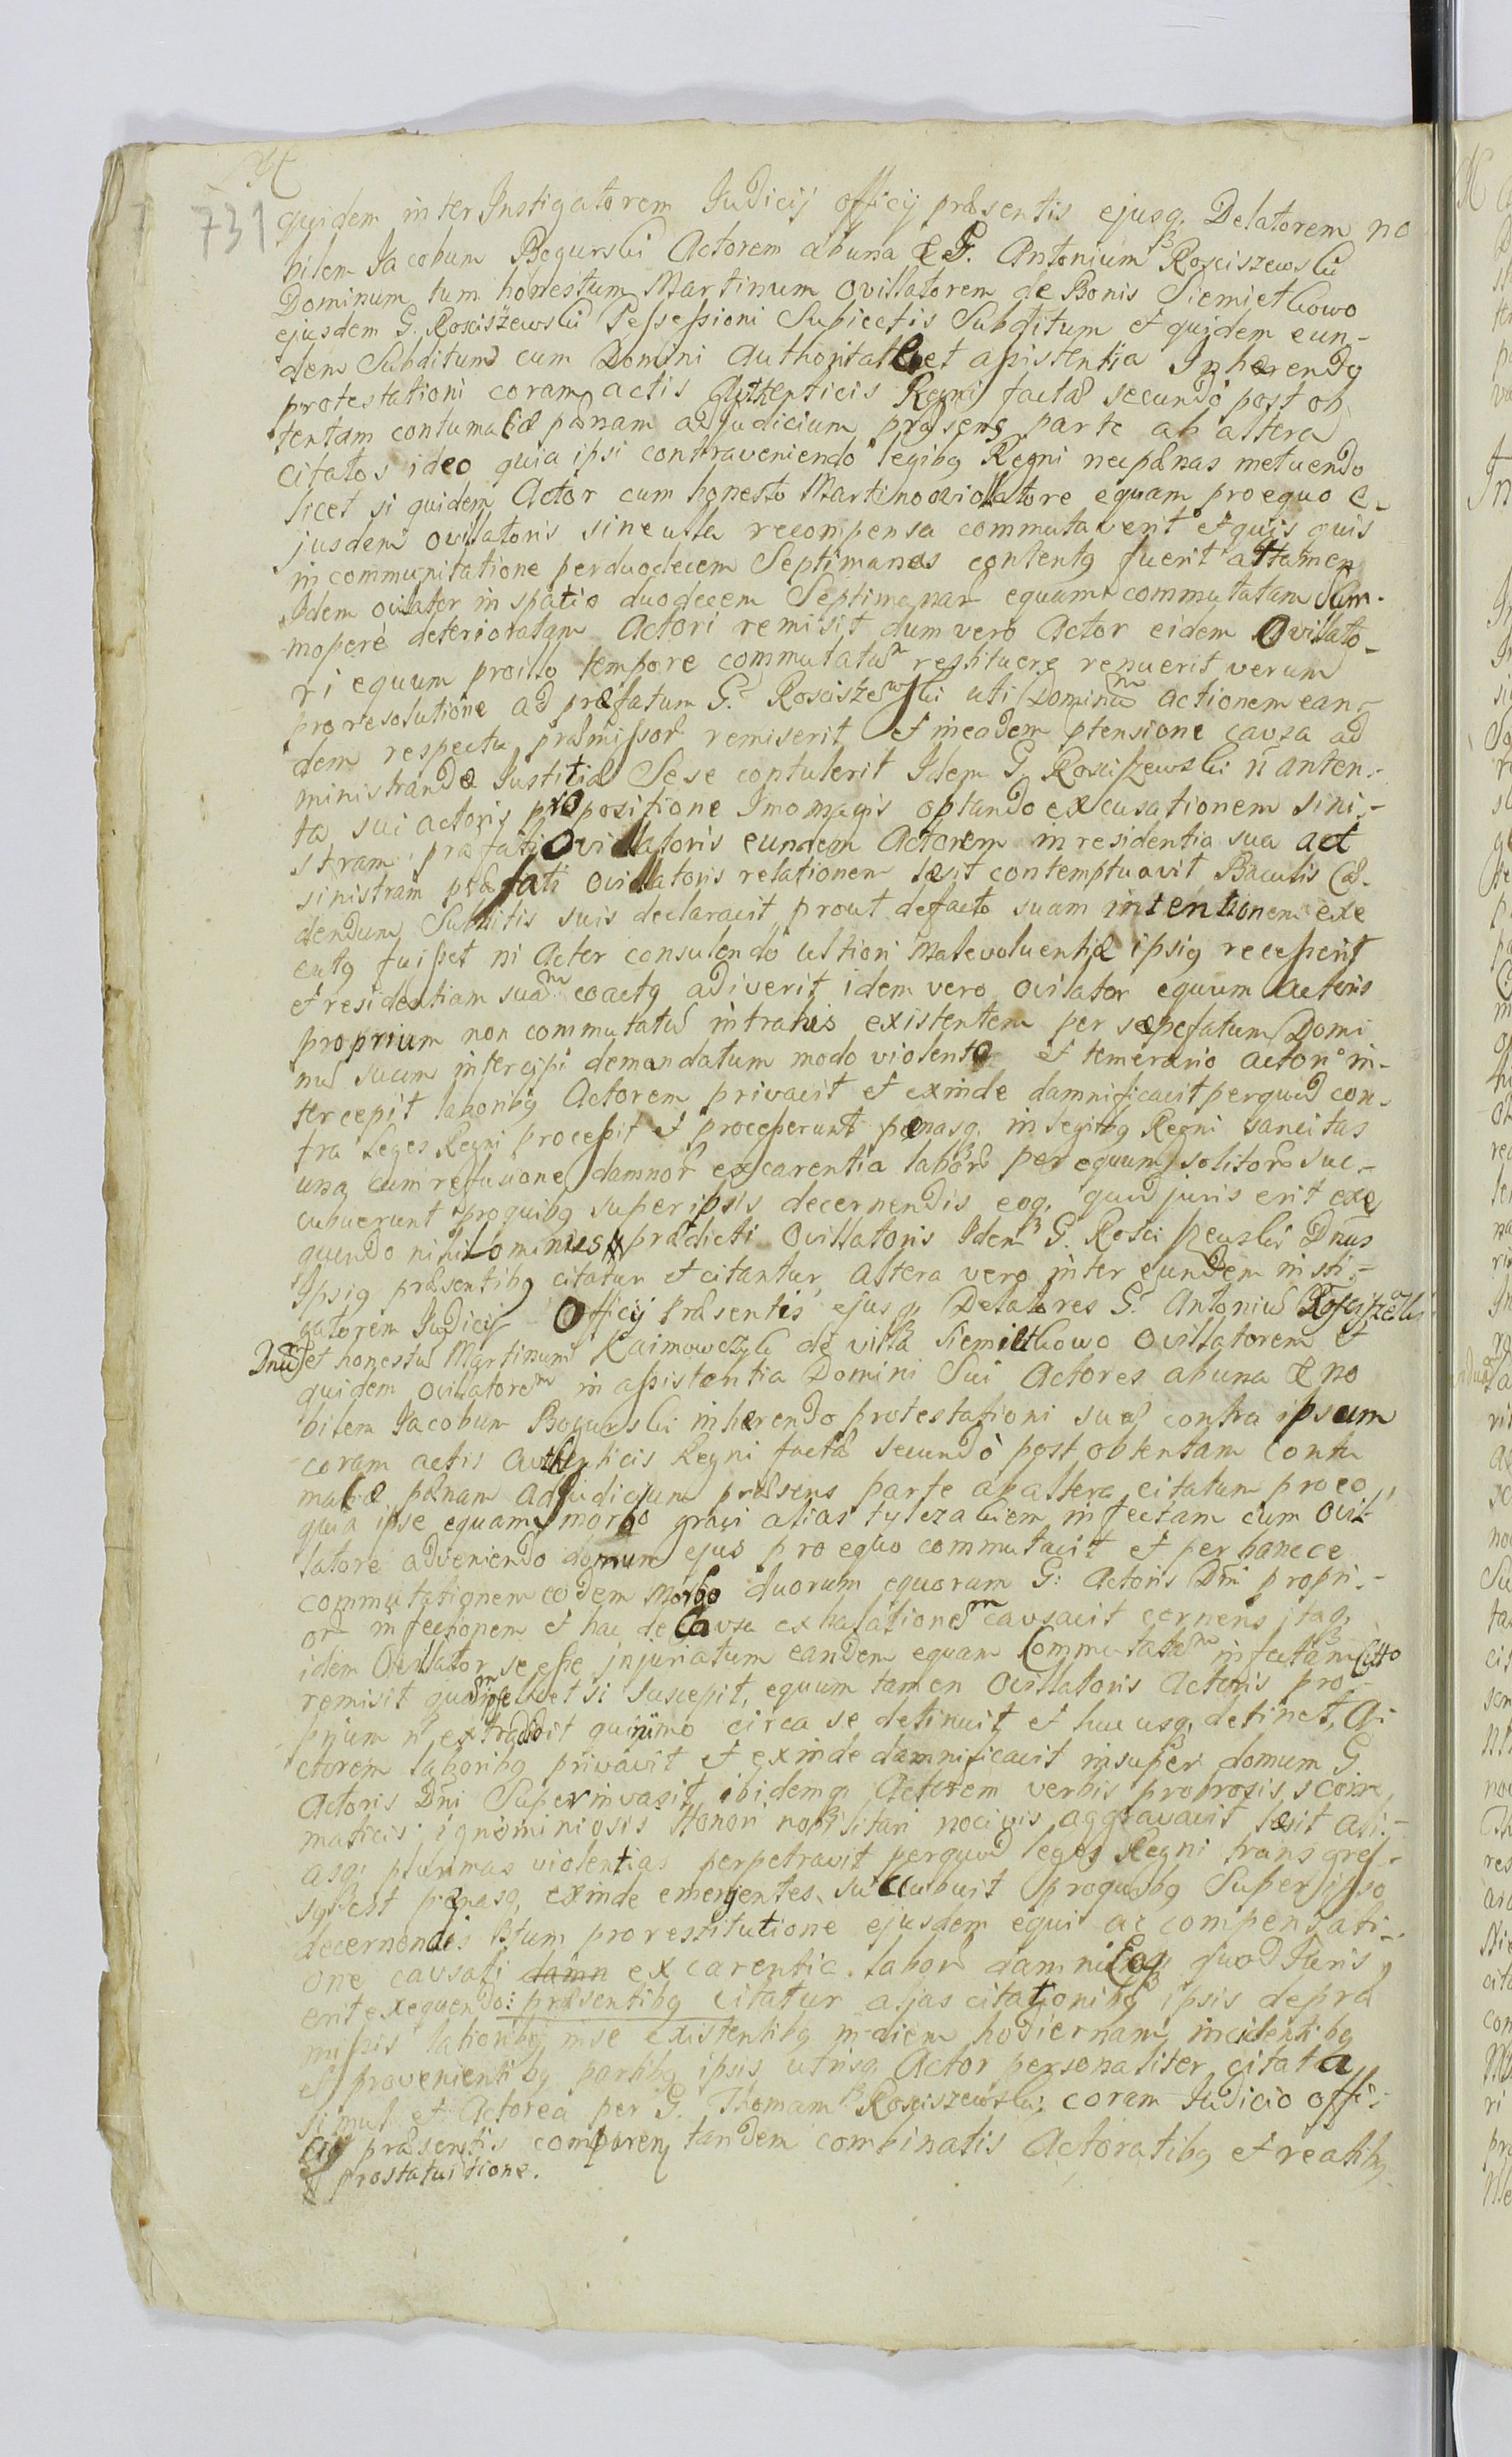 731
quidem inter Instigatorem Judicij officij præsentis ejusq. Delatorem no
bilem Jacobum Bogurski Actorem abuna & G. Antonium Rosciszewski
Dominum tum honestum Martinum Ovillatorem de Bonis Siemietkowo
ejusdem G. Rosciszewski Possessioni Subiectis Subditum et quidem eun-
dem Subditum cum Domini Authoritate et assistentia Inhærendo
protestationi coram actis Authenticis Regni factæ secundo post ob
tentam contumaciæ pænam ad Judicium præsens parte ab altera
citatos ideo quia ipsi contraveniendo legibq Regni nec pænas metuendo
licet si quidem Actor cum honesto Martino ovillatore equam pro equo e-
jusdem ovillatoris sine ulla recompensa commutaverit et quis quis
in communitatione per duodecem Septimanas contentq fuerit attamen
Idem ovilator in spatio duodecem Septimanar equam commutatam Sum-
mopere deterioratam Actori remisit dum vero Actor eidem Ovillato-
ri equum pro illo tempore commutatum restituere renuerit verum
pro resolutione ad præfatum G. Rosciszewski uti Dominum actionem ean-
dem respectu præmissor remiserit et in eadem ptensione causa ad
ministrandæ Justitiæ Sese contulerit Idem G. Rosciszewski n̄ anten-
ta sui actoris propositione Imo magis optando excusationem sini-
stram præfati Ovillatoris eundem Actorem in residentia sua act
sinistram præfati ovillatoris relationem læsit contemptuavit Baculis Cæ-
dendum Subditis suis declaravit prout de facto suam intentionem exe
cutq fuisset ni Actor consulendo ultiori malevoluentiæ ipsiq recesserit
et residentiam suam coactq adiverit idem vero ovilator equum Actoris
proprium non commutatum in trahis existentem per sæpefatum Domi
num suum intercipi demandatum modo violento et temerario actori in-
tercepit laboribq Actorem privavit et exinde damnificavit per quod con-
tra Leges Regni processit et processerunt pænasq. in legibq Regni sancitas
una cum refusione damnor ex carentia labor per equum solitor suc-
cubuerunt pro quibq super ipsis decernendis eoq. quod juris erit exe
quendo nihilominus prædicti Ovillatoris Idem G. Rosciszewski Dnus
Ipsiq præsentibq citatur et citantur, Altera vero inter eundem insti-
gatorem Judicij Officij Præsentis ejusq Delatores G. Antonium Rosciszewski
Dnum et honestum Martinum Kaimowczyk de villa Siemietkowo Ovillatorem et
quidem ovillatorem in assistentia Domini Sui Actores abuna & no
bilem Jacobum Bogurski inhærendo protestationi suæ contra ipsum
coram actis Authenticis Regni factæ secundò post obtentam contu
maciæ pænam ad Judicium præsens parte ab altera citatum pro eo,
quia ipse equam morbo gravi alias tylczakiem infectam cum ovil-
latore adveniendo domum ejus pro equo commutavit et per hancce
commutationem eodem morbo duorum equorum G: Actoris Dni propri-
or infectionem et hac de Causa exhalationem causavit cernens itaq,
idem Ovillator se esse injuriatum eandem equam Commutatam infectam Citto
remisit quam ipse et si suscepit, equum tamen Ovillatoris Actoris pro-
prium n̄ extradidit quinimo circa se detinuit et huc usq, detinet, A-
ctorem laboribq privavit et exinde damnificavit insuper domum G
Actoris Dni Superinvasit ibidemq Actorem verbis probrosis, scom
maticis ignominiosis Honori nobilitari nocivis aggravavit læsit ali-
asq plurimas violentias perpetravit per quod leges Regni transgres-
sq est pænasq, exinde emergentes succubuit pro quibq Super ipso
decernendis tum pro restitutione ejusdem equi ac compensati-
one causati damn ex carentia labor damni Eoq quod Juris
erit exequendo: præsentibq citatur alias citationibq ipsis depræ
missis lationibq in se existentibq in diem hodiernam incidentibq
et provenientibq partibq ipsis utrisq Actor personaliter citata
simul et Actorea per G. Thomam Rosciszewski coram Judicio offi-
cij præsentis comparen tandem combinatis Actoratibq et reatibq
et pro statuitione.